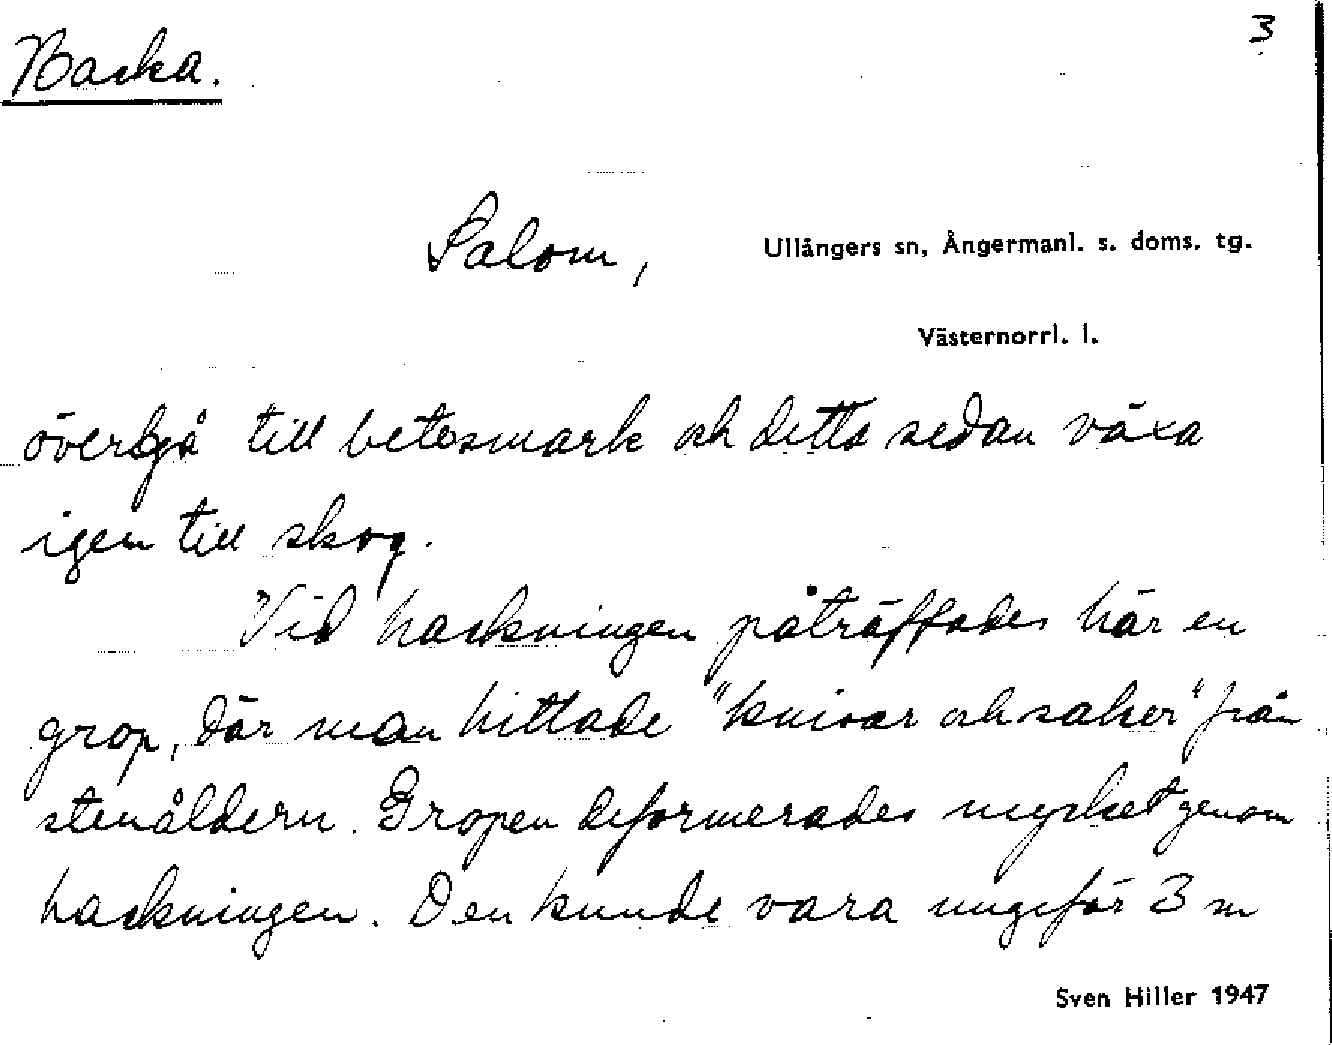 3
Backa.
Salom, Ullångers sn, Ångermanl. s. doms. tg.
Västernorrl. l.
övergå till betesmark och detta sedan växa
igen till skog.
Vid hackningen påträffades här en
grop, där man hittade "knivar och saker" från
stenåldern. Gropen deformerades mycket genom
hackningen. Den kunde vara ungefär 3 m
Sven Hiller 1947